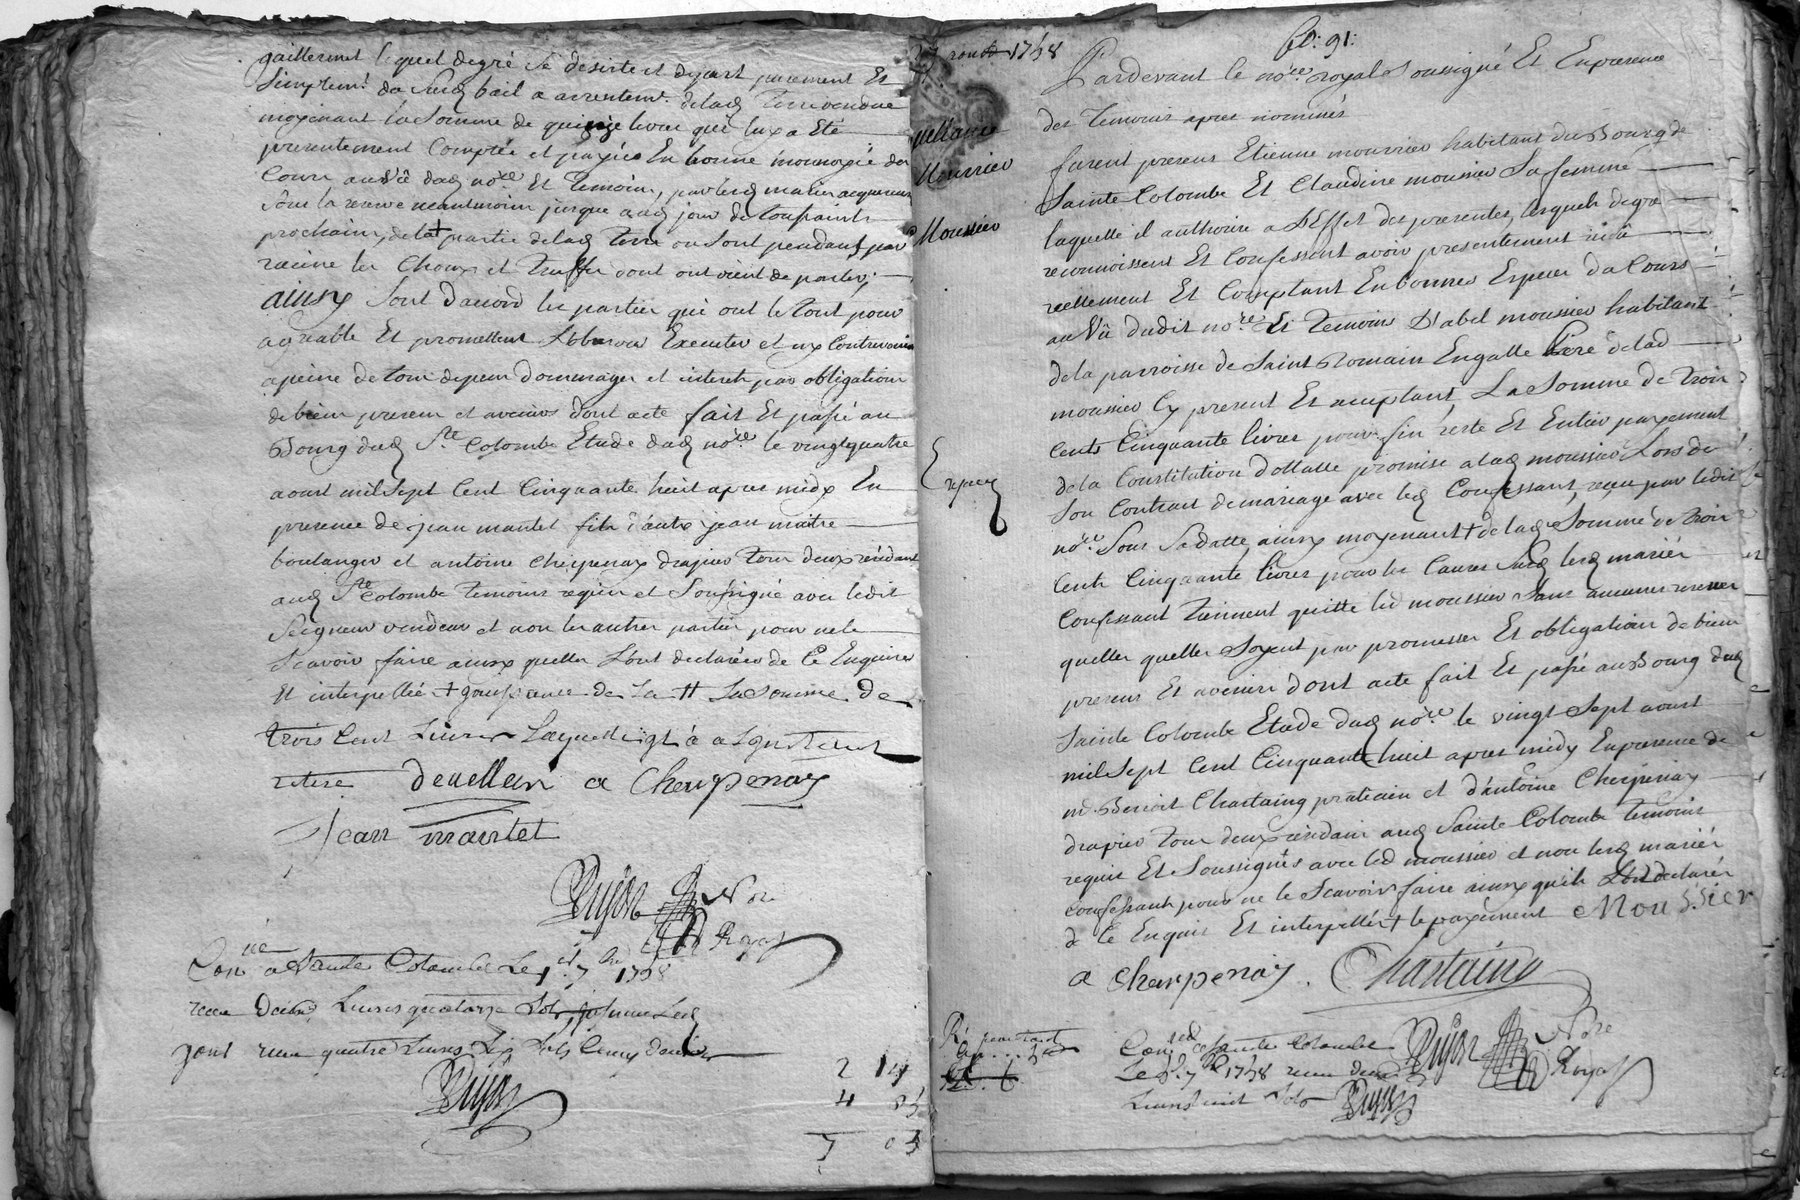 gaillermet lequel degré se desiste et depart purement Et
simplemt du susd bail a arrentemt delad Terre vendue
moyenant la Somme de quinze livres qui luy a Eté
presentement Comptée et payée En bonne monnoyie de
Cours au Vû dud nore Et Temoins, par lesd mariés acquereurs
Sous la reserve neantmoins jusque aud jour de Toussaints
prochain, de la + partie delad Terre ou sont pendants par
racine les Choux et Truffes dont ont vient de parler;
ainsy sont d'accord les parties qui ont le Tout pour
agreable Et promettent observer Executer et ny Contrevenir
apeine de tous depens dommages et interets par obligation
de biens presens et avenirs dont acte fait Et passé au
Bourg dud Ste Colombe Etude dud nore le vingtquatre
aoust mil Sept Cent Cinquante huit apres midy En
presence de jean mantet fils d'autre jean maitre
boulanger et antoine cherpenay drapier Tous deux résidant
aud Ste Colombe Temoins requis et Soussigné avec ledit
Seigneur vendeur et non les autres parties pour ne le
Scavoir faire ainsy quelles L'ont declarées de Ce Enquises
Et interpellée + jouissance de La ++ La Somme de
trois Cent Livres Laquelle
retire devellein a Cherpenay
Jean mantet
Dujon Nore
Royal
Conlé a Sainte Colombe Le 1er 7bre 1758
receu Deux Livres quatorze sols
pour reçu quatre Livres Six sols
Dujon
2 14
4
7
27 aoust 1758
quittance
Mourrier
Moussier
Expdiée
fo: 91:
Pardevant le nore royal Soussigné Et En presence
des Temoins apres nommés
furent presens Etienne mourrier habitant du Bourg de
Sainte Colombe Et Claudine moussier Sa femme
laquelle il authorise a L'Effet des presentes, lesquels de gré
reconnoissent Et Confessent avoir presentement reçû
réellement Et Comptant En bonnes Especes de Cours
au Vû dudit nore Et Temoins d'abel moussier habitant
de la parroisse de Saint Romain En galle Pere de lad
moussier Cy present Et acceptant La Somme de Trois
Cents Cinquante livres pour fin reste Et Entier payement
de la Constitution dottalle promise a lad moussier Lors de
Son Contrat de mariage avec led Confessant, reçu par ledit
nore Sous Sa datte, ainsy moyenant + de lad Somme de Trois
Cents Cinquante livres pour les Causes Susd lesd mariés
Confessant Tiennent quitte led moussier Sans aucunes reserves
quelles quelles Soyent par promesses Et obligation de biens
presens Et avenirs dont acte fait Et passé au Bourg dud
Sainte Colombe Etude dud nore le vingt Sept aoust
mil Sept Cent Cinquante huit apres midy En presence de
m. Benoit Chastaing praticien et d'antoine Cherpenay
drapier Tous deux residans aud Sainte Colombe Temoins
requis Et Soussignés avec led moussier et non lesd mariés
Confessants pour ne le Scavoir faire ainsy quils L'ont declarés
de Ce Enquis Et interpellés + le payement Moussier
a Cherpenay . Chastaing
Dujon Nore
Royal
Conlé a Sainte Colombe
Le 7bre 1758 receu deux
Livres huit sols Dujon